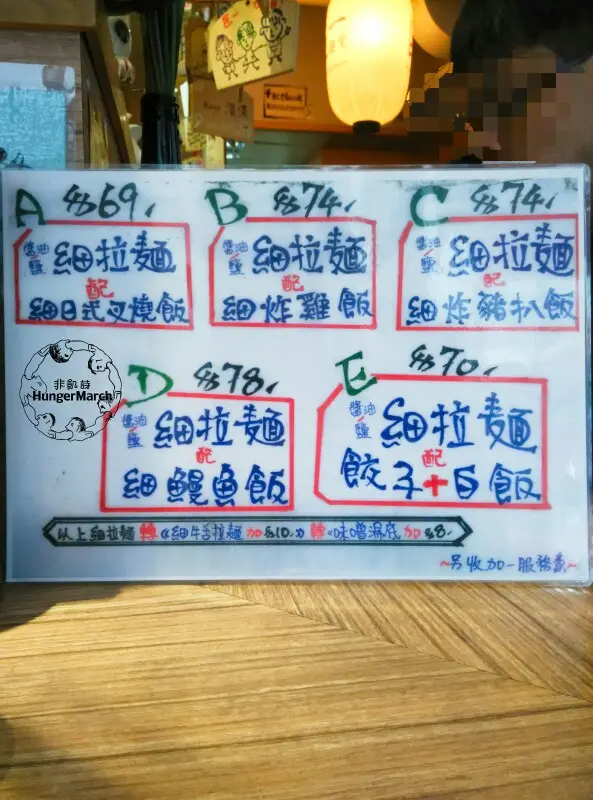 facebook
A $69
醬油/鹽 細拉麵
配
細日式叉燒飯
B $74
醬油/鹽 細拉麵
配
細炸雞飯
C $74
醬油/鹽 細拉麵
配
細炸豬扒飯
非飢詩
HungerMarch
D $78
醬油/鹽 細拉麵
配
細鰻魚飯
E $70
醬油/鹽 細拉麵
配
餃子+白飯
以上細拉麵轉《細牛舌拉麵加$10》轉《味噌湯底加$8》
~另收加一服務費~